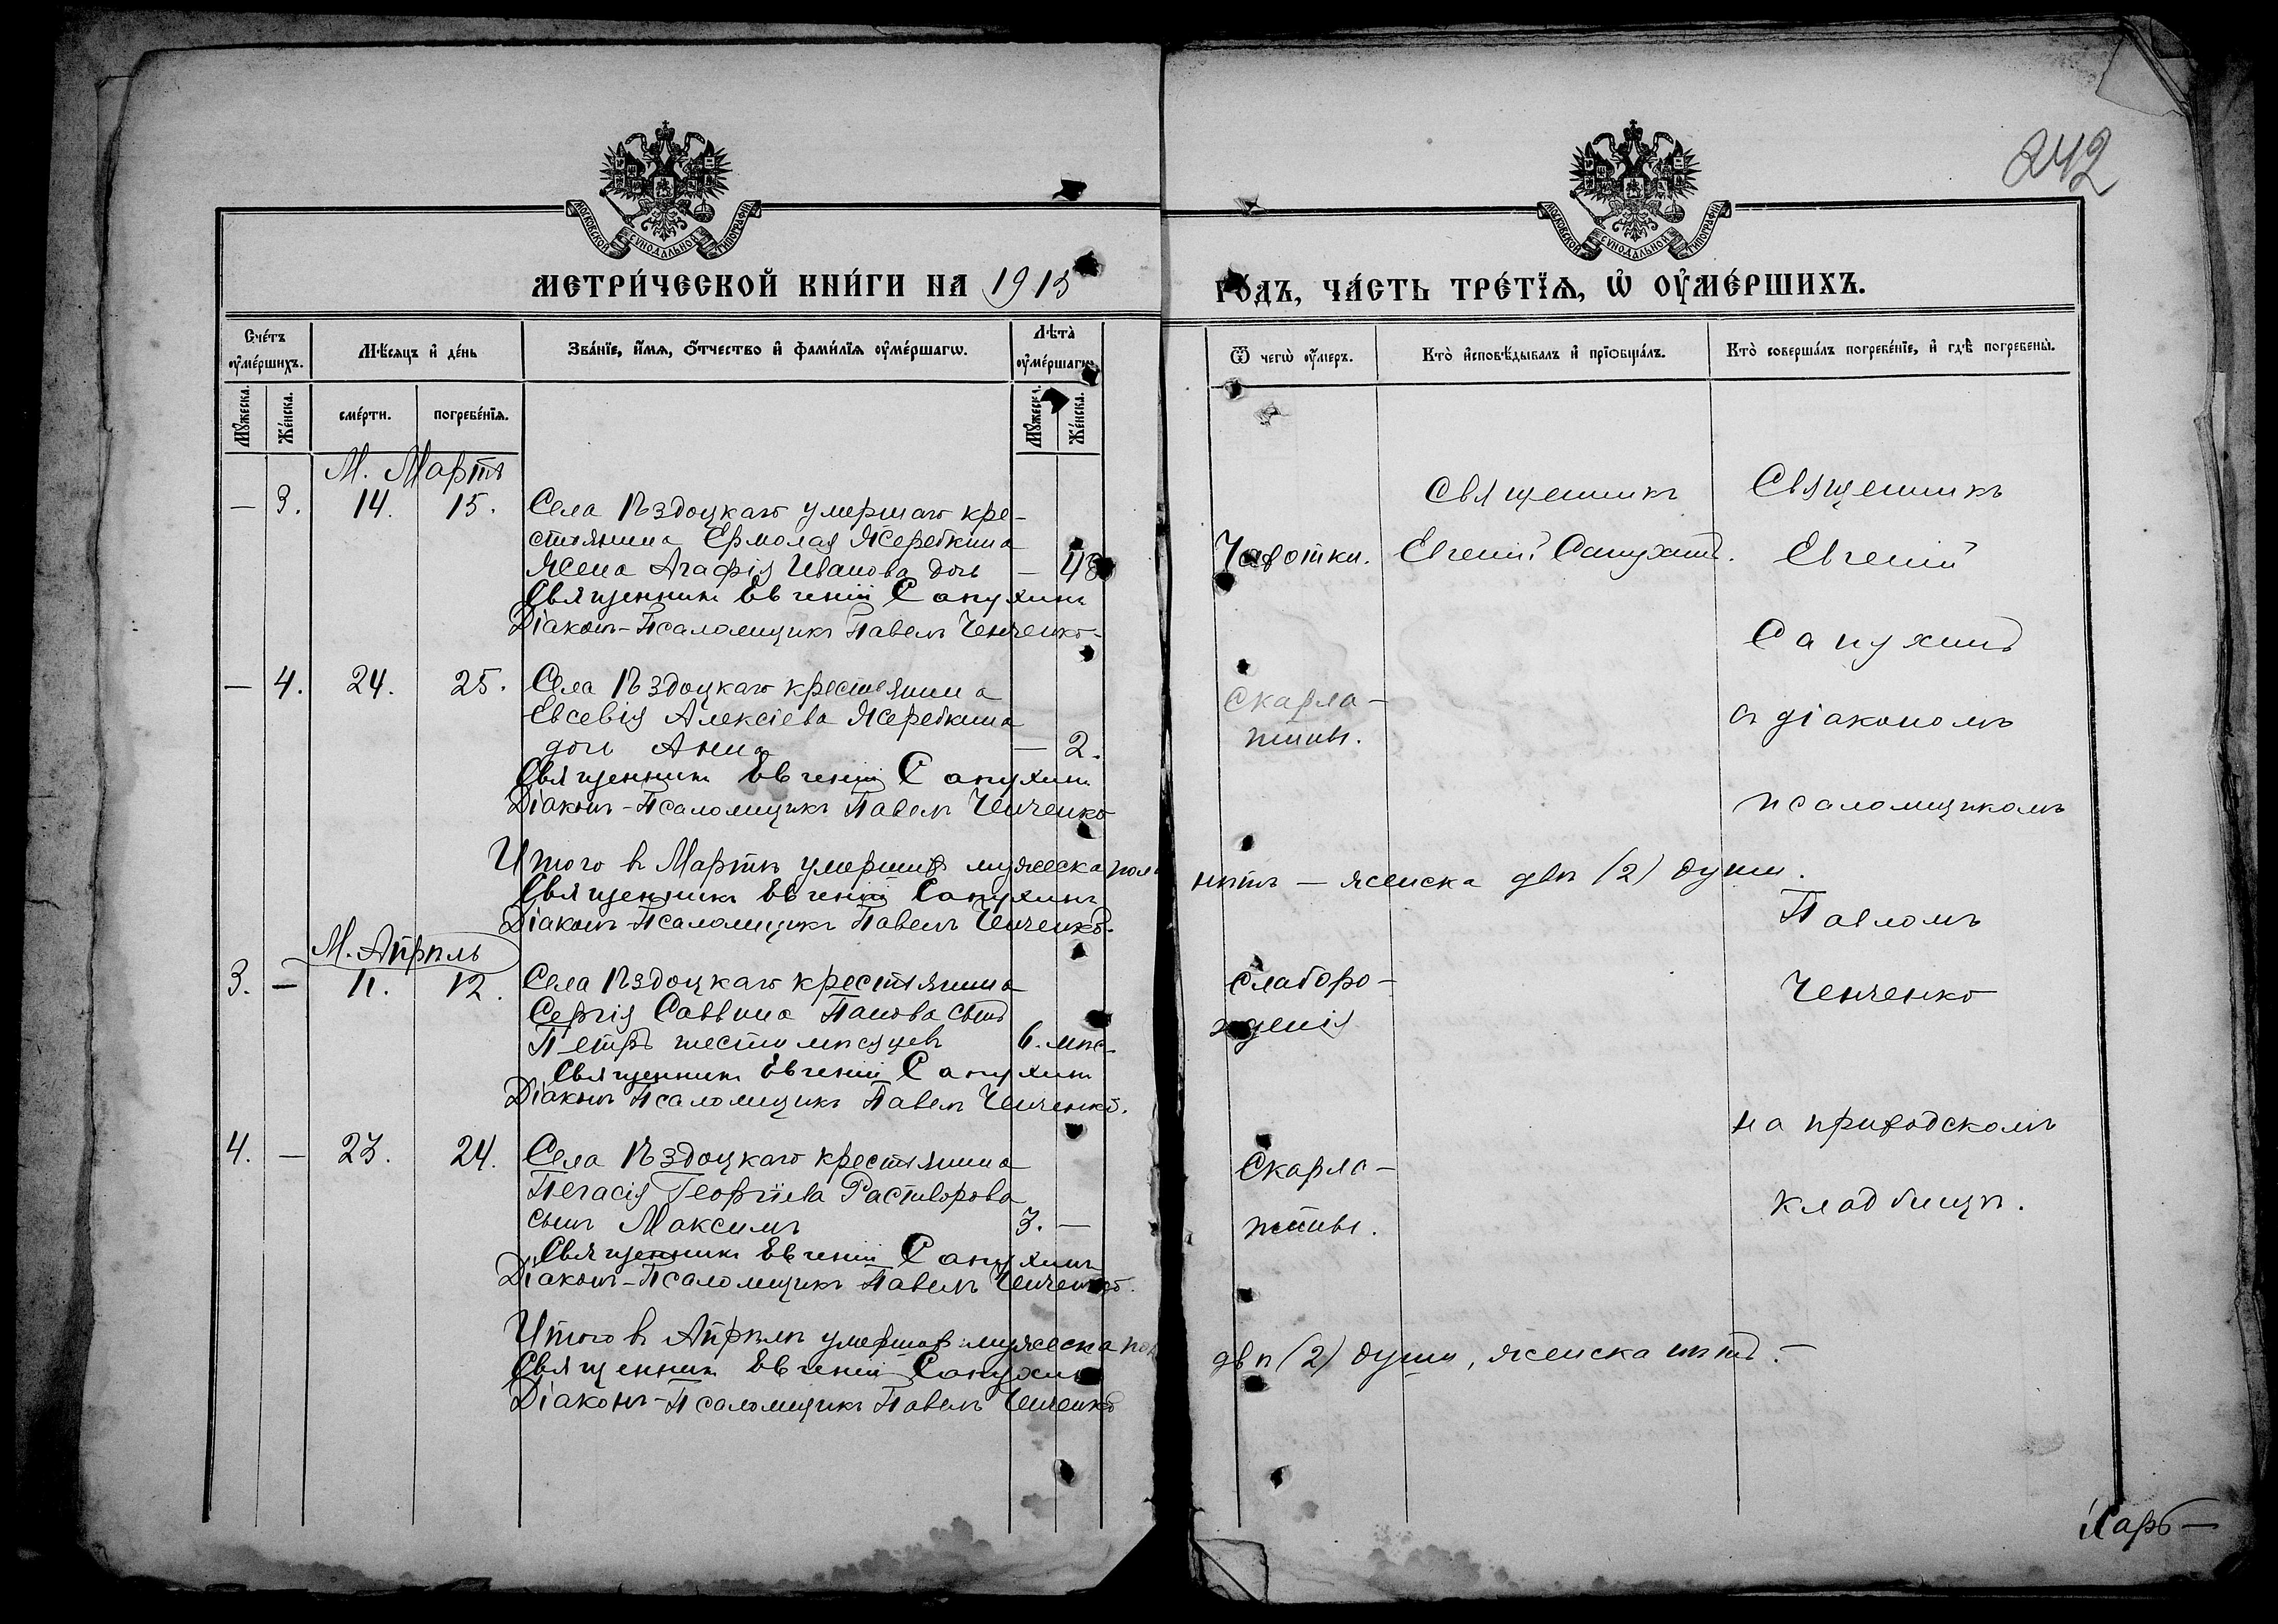 242
МОСКОВСКОЙ СѴНОДАЛЬНОЙ ТИПОГРАФІИ
МОСКОВСКОЙ СѴНОДАЛЬНОЙ ТИПОГРАФІИ
МЕТРИ́ЧЕСКОЙ КНИ́ГИ НА 1913 ГО́ДЪ, ЧА́СТЬ ТРЕ́ТЇѦ, Ѡ҆ ОУ҆МЕ́РШИХЪ.
Сче́тъ оу҆ме́ршихъ.
Мꙋ́жеска.
Же́нска.
Мѣ́сѧцъ и҆ де́нь
сме́рти.
погребе́нїѧ.
Зва́нїе, и҆́мѧ, ѻ҆́тчество и҆ фами́лїѧ оу҆ме́ршагѡ.
Лѣ́та оу҆ме́ршагѡ.
Мꙋ́жеск.
Же́нска.
Ѿ чегѡ̀ оу҆́меръ.
Кто̀ и҆сповѣ́дывалъ и҆ прїѡбща́лъ.
Кто̀ соверша́лъ погребе́нїе, и҆ гдѣ̀ погребены̀.
М. Мартъ
— 3. 14. 15. Села Ѣздоцкаго умершаго кре-
стьянина Ермолая Жеребкина
Жена Агафія Иванова дочь — 48
Священникъ Евгеній Сапухинъ
Діаконъ-Псаломщикъ Павелъ Ченченко.
Чахотки.
Священникъ
Евгеній Сапухинъ.
Священникъ
Евгеній
Сапухинъ
съ діакономъ
псаломщикомъ
Павломъ
Ченченко
на приходскомъ
кладбищѣ.
— 4. 24. 25. Села Ѣздоцкаго крестьянина
Евсевія Алексіева Жеребкина
дочь Анна — 2.
Священникъ Евгеній Сапухинъ
Діаконъ-Псаломщикъ Павелъ Ченченко
Скарла-
тины.
Итого въ Мартѣ умершихъ мужеска пола нѣтъ — женска двѣ (2) души.
Священникъ Евгеній Сапухинъ
Діаконъ-Псаломщикъ Павелъ Ченченко.
М. Апрѣль
3. — 11. 12. Села Ѣздоцкаго крестьянина
Сергія Саввина Панова сынъ
Петръ шести мѣсяцевъ 6. мѣс.
Священникъ Евгеній Сапухинъ
Діаконъ Псаломщикъ Павелъ Ченченко.
Слаборо-
жденія
4. — 23. 24. Села Ѣздоцкаго крестьянина
Пегасія Георгіева Растворова
сынъ Максимъ 3. —
Священникъ Евгеній Сапухинъ
Діаконъ-Псаломщикъ Павелъ Ченченко.
Скарла-
тины.
Итого въ Апрѣлѣ умершихъ мужеска пол двѣ (2) души, женска нѣтъ. —
Священникъ Евгеній Сапухинъ
Діаконъ-Псаломщикъ Павелъ Ченченко